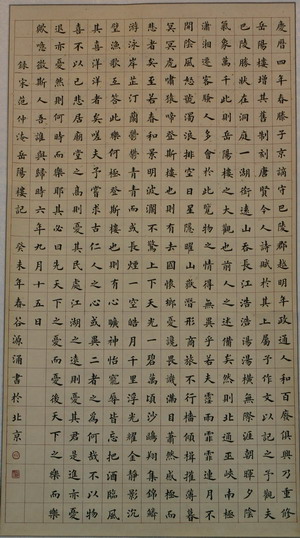 慶曆四年春滕子京謫守巴陵郡越明年政通人和百廢俱興乃重修
岳陽樓增其舊制刻唐賢今人詩賦於其上屬予作文以記之予觀夫
巴陵勝狀在洞庭一湖銜遠山吞長江浩浩湯湯橫無際涯朝暉夕陰
氣象萬千此則岳陽樓之大觀也前人之述備矣然則北通巫峽南極
瀟湘遷客騷人多會於此覽物之情得無異乎若夫霪雨霏霏連月不
開陰風怒號濁浪排空日星隱曜山嶽潛形商旅不行檣傾楫摧薄暮
冥冥虎嘯猿啼登斯樓也則有去國懷鄉憂讒畏譏滿目蕭然感極而
悲者矣至若春和景明波瀾不驚上下天光一碧萬頃沙鷗翔集錦鱗
游泳岸芷汀蘭鬱鬱青青而或長煙一空皓月千里浮光耀金靜影沉
璧漁歌互答此樂何極登斯樓也則有心曠神怡寵辱皆忘把酒臨風
其喜洋洋者矣嗟夫予嘗求古仁人之心或異二者之為何哉不以物
喜不以己悲居廟堂之高則憂其民處江湖之遠則憂其君是進亦憂
退亦憂然則何時而樂耶其必曰先天下之憂而憂後天下之樂而樂
歟噫微斯人吾誰與歸時六年九月十五日
錄宋范仲淹岳陽樓記 癸未年春谷源涌書於北京